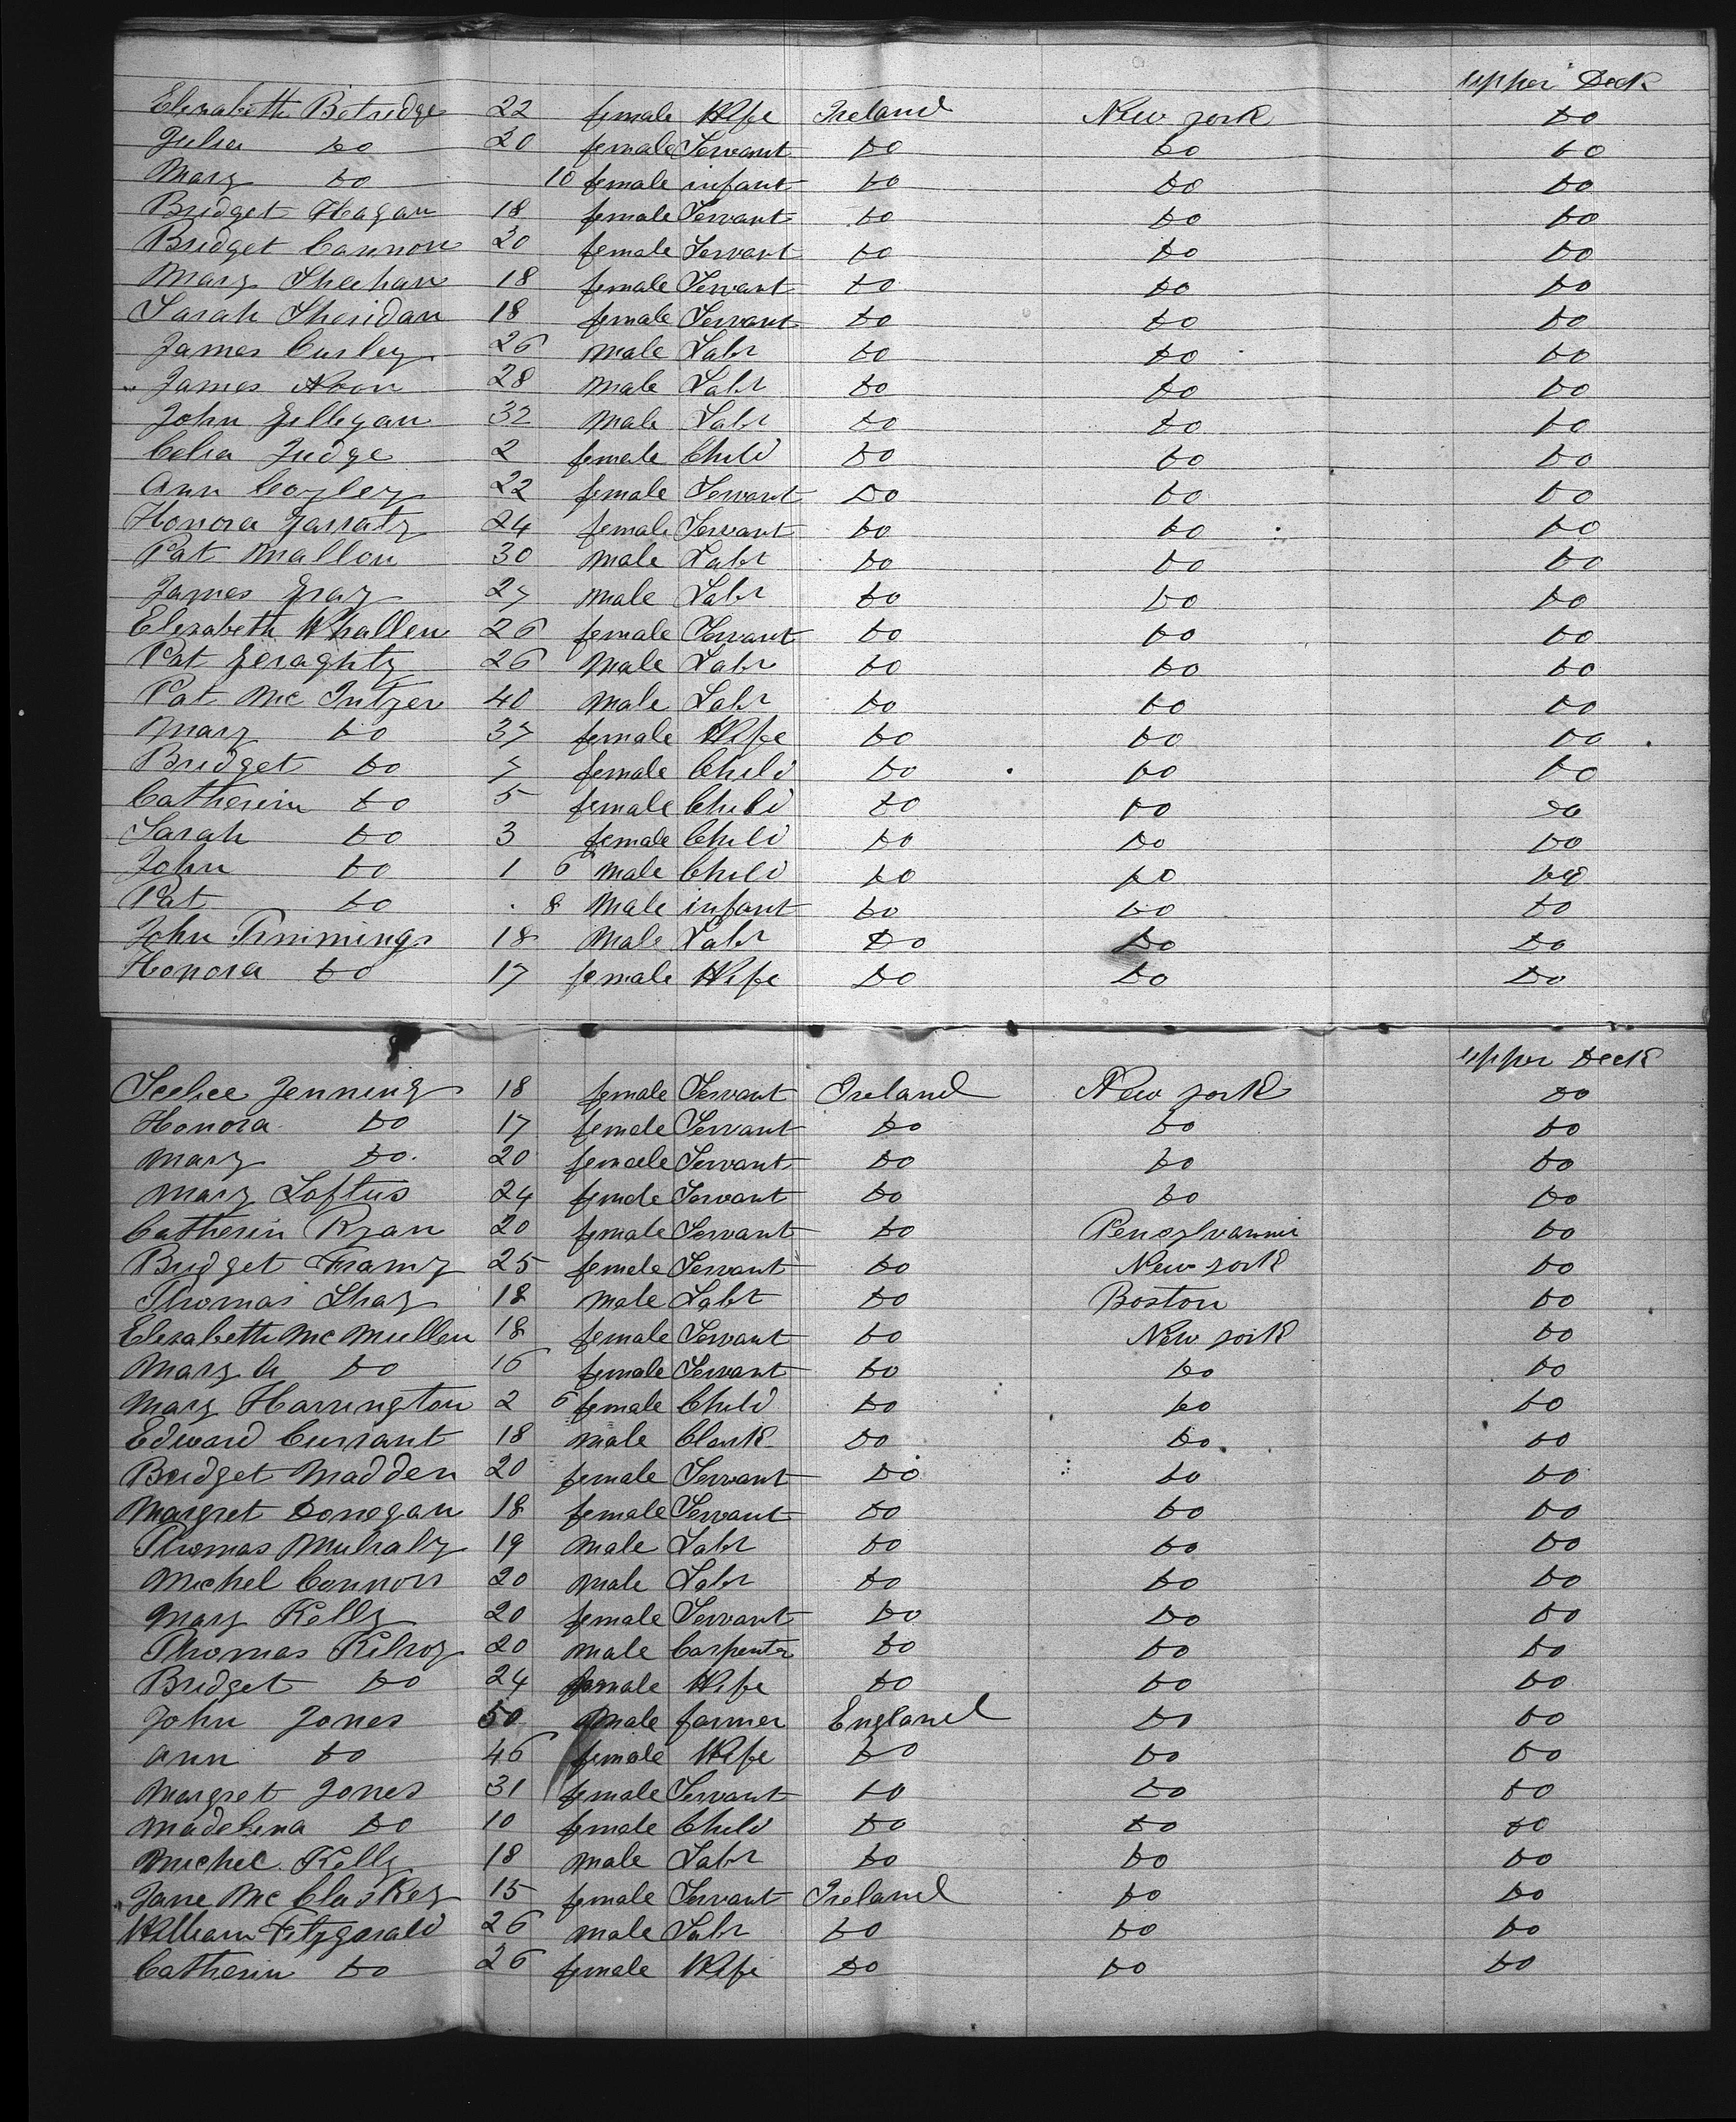 upper Deck
Elizabeth Betridge 22 female Wife Ireland New york Do
Julia Do 20 female Servant Do Do Do
Mary Do 10 female infant Do Do Do
Bridget Hagan 18 female Servant Do Do Do
Bridget Cannon 20 female Servant Do Do Do
Mary Sheehan 18 female Servant Do Do Do
Sarah Sheridan 18 female Servant Do Do Do
James Curley 26 male Labr Do Do Do
James Noon 28 male Labr Do Do Do
John Gillegan 32 male Labr Do Do Do
Celia Judge 2 female Child Do Do Do
Ann Coyley 22 female Servant Do Do Do
Honora Garraty 24 female Servant Do Do Do
Pat Mallon 30 male Labr Do Do Do
James Gray 27 male Labr Do Do Do
Elizabeth Whallen 26 female Servant Do Do Do
Pat Geraghty 26 male Labr Do Do Do
Pat Mc Intyer 40 male Labr Do Do Do
Mary Do 37 female Wife Do Do Do
Bridget Do 7 female Child Do Do Do
Catherin Do 5 female Child Do Do Do
Sarah Do 3 female Child Do Do Do
John Do 1 6 male Child Do Do Do
Pat Do 8 male infant Do Do Do
John Timmings 18 male Labr Do Do Do
Honora Do 17 female Wife Do Do Do
upper Deck
Jenning 18 female Servant Ireland New york Do
Honora Do 17 female Servant Do Do Do
Mary Do 20 female Servant Do Do Do
Mary Loftus 24 female Servant Do Do Do
Catherin Ryan 20 female Servant Do Pensylvannia Do
Bridget Framy 25 female Servant Do New york Do
Thomas Shay 18 male Labr Do Boston Do
Elizabeth Mc Mullen 18 female Servant Do New york Do
Mary A Do 16 female Servant Do Do Do
Mary Harrington 2 6 female Child Do Do Do
Edward Currant 18 male Clark Do Do Do
Bridget Madden 20 female Servant Do Do Do
Margret Donogan 18 female Servant Do Do Do
Thomas Mulraly 19 male Labr Do Do Do
Michel Connors 20 male Labr Do Do Do
Mary Kelly 20 female Servant Do Do Do
Thomas Kilroy 20 male Carpenter Do Do Do
Bridget Do 24 female Wife Do Do Do
John Jones 50 male farmer England Do Do
Ann Do 46 female Wife Do Do Do
Margret Jones 31 female Servant Do Do Do
Madelina Do 10 female Child Do Do Do
Michel Kelly 18 male Labr Do Do Do
Jane Mc Claskey 15 female Servant Ireland Do Do
William Fitzgerald 26 male Labr Do Do Do
Catherin Do 26 female Wife Do Do Do